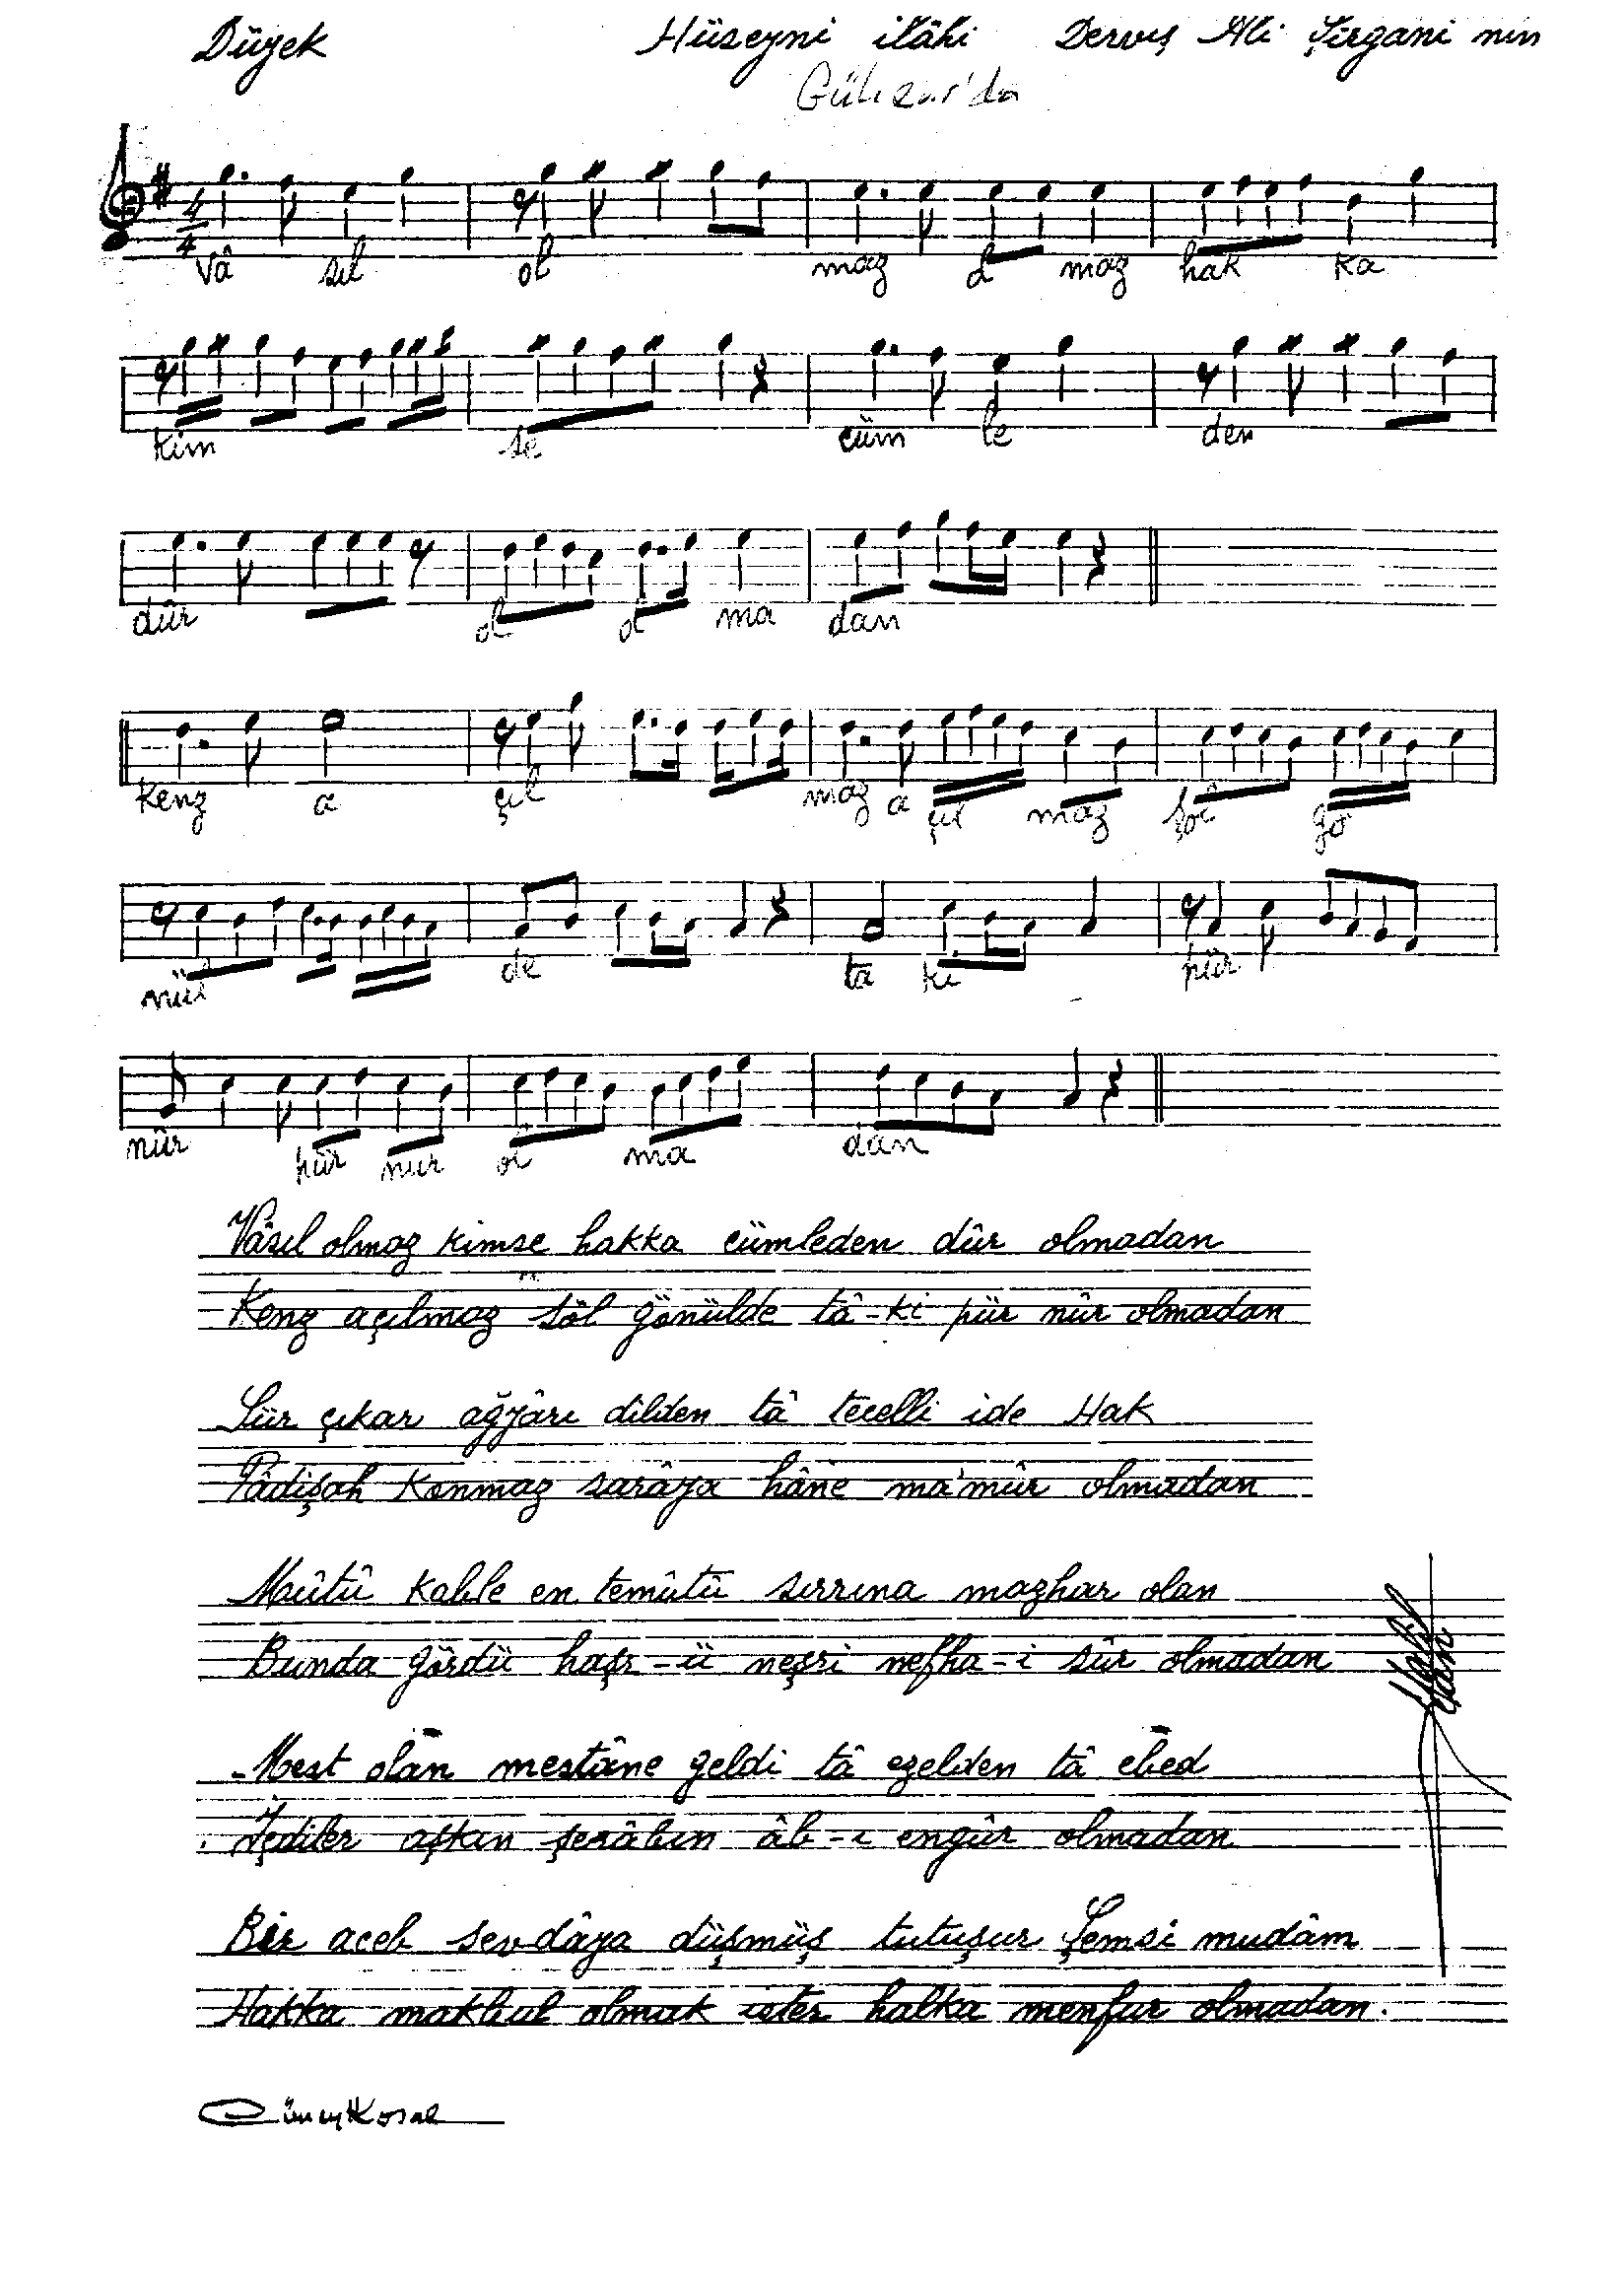 Düyek Hüseyni ilâhi Derviş Ali Şirgani nin
Gülizar'da
4/4
Vâ sıl ol maz ol maz hak ka
kim se cüm le den
dûr ol ol ma dan
Kenz a çıl maz a çıl maz şol gö
nül de tâ ki pür
nûr pür nur ol ma dan
Vâsıl olmaz kimse hakka cümleden dûr olmadan
Kenz açılmaz şöl gönülde tâ-ki pür nûr olmadan
Sür çıkar ağyârı dilden tâ tecelli ide Hak
Pâdişah Konmaz sarâya hâne ma'mûr olmadan
Mûtû kable en temûtû sırrına mazhar olan
Bunda gördü haşr-ü neşri nefha-i sûr olmadan
Mest olan mestâne geldi tâ ezelden tâ ebed
İçdiler aşkın şerâbın âb-ı engûr olmadan
Bir aceb sevdâya düşmüş tutuşur Şemsi mudâm
Hakka makbul olmak ister halka menfur olmadan.
Cüneyt Kosal